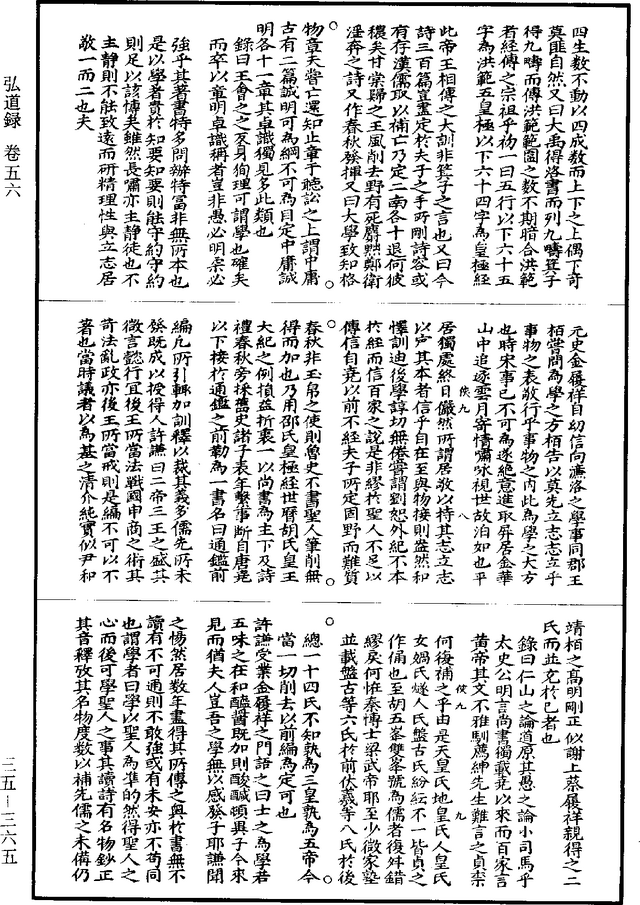 四生數不動以四成數而上下之上偶下奇
莫匪自然又曰大禹得洛書而列九疇箕子
得九疇而傳洪範範圍之數不期暗合洪範
者經傳之宗祖乎初一曰五行以下六十五
字為洪範五皇極以下六十四字為皇極經
此帝王相傳之大訓非箕子之言也又曰今
詩三百篇豈盡定於夫子之手所刪詩容或
有存漢儒取以補亡乃定二南各十退何彼
穠矣甘棠歸之王風削去野有死麕黜鄭衛
淫奔之詩又作春秋發揮又曰大學致知格
物章未嘗亡還知止章于聽訟之上謂中庸
古有二篇誠明可為綱不可為目定中庸誠
明各十一章其卓識獨見多此類也
錄曰王會之之矜身徇理可謂學也確矣
而卒以童明卓識稱者豈非愚必明柔必
強乎其著書特多問辯特富非無所本也
是以學者貴於知要知要則能守約守約
則足以該博矣雖然長嘯亦主靜徒也不
主靜則不能致遠而研精理性與立志居
敬一而二也夫
元史金履祥自幼信向濂洛之學事同郡王
栢嘗問為學之方栢告以莫先立志志立乎
事物之表敬行乎事物之內此為學之大方
也時宋事已不可為遂絕意進取屏居金華
山中追逐雲月寄情嘯咏視世故泊如也平
居獨處終日儼然所謂居敬以持其志立志
以定其本者信乎自在至與物接則盎然和
懌訓迪後學諄切無倦嘗謂劉恕外紀不本
於經而信百家之說是非繆於聖人不足以
傳信自堯以前不經夫子所定固野而難質
春秋非玉帛之使則魯史不書聖人筆削無
得而加也乃用邵氏皇極經世曆胡氏皇王
大紀之例損益折衷一以尚書為主下及詩
禮春秋旁採舊史諸子表年繫事斷自唐堯
以下接於通鑑之前勒為一書名曰通鑑前
編凡所引輒加訓釋以裁其義多儒先所未
發既成以授得人許謙曰二帝三王之盛其
微言懿行宜後王所當法戰國申商之術其
苛法亂政亦後王所當戒則是編不可以不
著也當時議者以為基之清介純實似尹和
靖栢之高明剛正似謝上蔡履祥親得之二
氏而並充於己者也
錄曰仁山之論道原其愚之論小司馬乎
太史公明言尚書獨載堯以來而百家言
黃帝其文不雅馴薦紳先生難言之貞索
何復補之乎由是天皇氏地皇氏人皇氏
女媧氏燧人氏盤古氏紛紜不一皆貞之
作俑也至胡五峯雙峯號為儒者復舛錯
繆戾何恠秦博士梁武帝耶至少微家塾
並載盤古等六氏於前伏羲等八氏於後
總一十四氏不知孰為三皇孰為五帝今
當一切削去以前編為定可也
許謙受業金履祥之門語之曰士之為學若
五味之在和醯醬既加則酸鹹頓異子今來
見而猶夫人豈吾之學無以感發子耶謙聞
之惕然居數年盡得其所傳之奧於書無不
讀有不可通則不敢強或有未安亦不苟同
也謂學者曰學以聖人為準的然得聖人之
心而後可學聖人之事其讀詩有名物鈔正
其音釋攷其名物度數以補先儒之未備仍
弘道錄 卷五六
三五—三六五
俠九 八
俠九 九